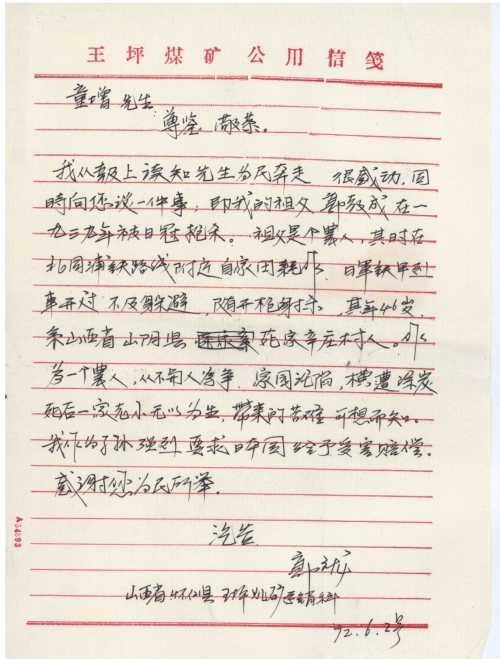 王坪煤矿公用信笺
童增先生：
尊鉴 敬恭。
我从报上读知先生为民奔走 很感动，同
時向您谈一件事，即我的祖父 郭 成在一
九三九年被日冠枪杀。祖父是个農人，其时在
北同浦铁路线附近自家田 ，日軍铁甲列
車开过 不及躲避，随开枪射杀，其年46岁。
系山西省山阴县 家辛庄村人。
为一个農人，从不与人 争，家国沦陷，横遭
死后一家老小无以为生，带来的苦难可想而知。
我作为子孙强烈要求日本国给予受害赔偿。
感谢您为民所举。
 告
郭
山西省怀仁县王坪煤矿 销科
92.6.2号
A54693